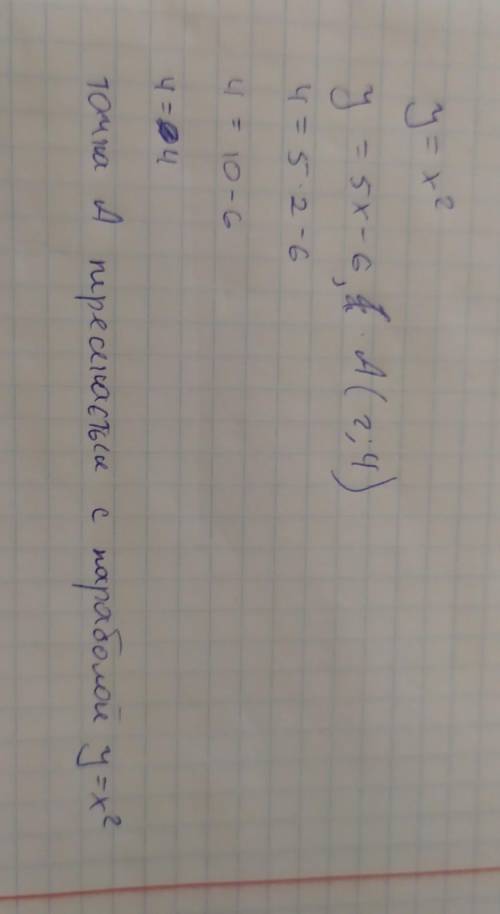 y = x²
y = 5x - 6, A(2; 4)
4 = 5·2 - 6
4 = 10 - 6
4 = 4
точка A с параболой y = x²